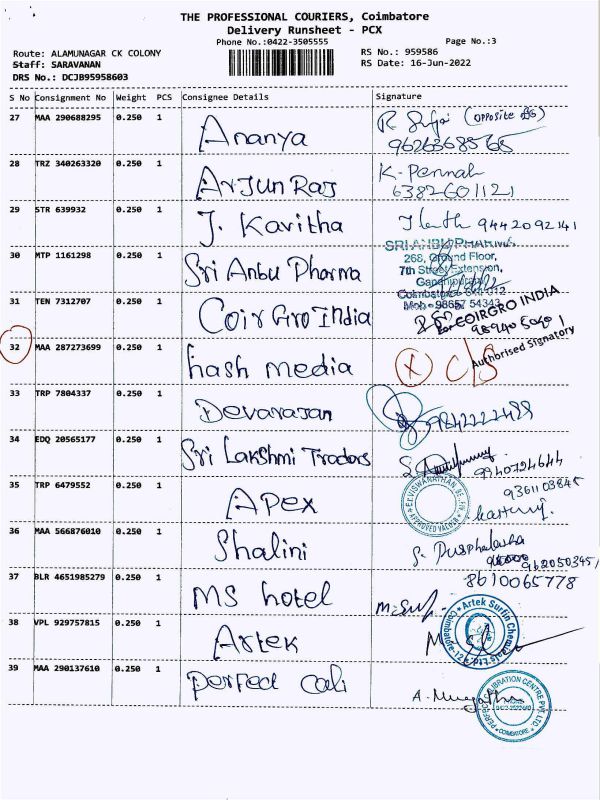 THE PROFESSIONAL COURIERS, Coimbatore
Delivery Runsheet - PCX
Phone No.:0422-3505555
Page No.:3
Route: ALAMUNAGAR CK COLONY
RS No.: 959586
Staff: SARAVANAN
RS Date: 16-Jun-2022
DRS No.: DCJB95958603
S No Consignment No Weight PCS Consignee Details Signature
27 MAA 290688295 0.250 1 Ananya
(opposite
9626368565
28 TRZ 340263320 0.250 1 Arjun Raj K. Pennah
6382601121
29 STR 639932 0.250 1 J. Kavitha 9442092141
30 MTP 1161298 0.250 1 Sri Anbu Pharma
SRI ANBU PHARMA,
268, Ground Floor,
7th Street Extension,
Gandhipuram
Coimbatore - 641 012
Mob - 98657 54343
31 TEN 7312707 0.250 1 Coir Gro India
For COIRGRO INDIA
Authorised Signatory
32 MAA 287273699 0.250 1 hash media X C/S
33 TRP 7804337 0.250 1 Devarajan 9842222488
34 EDQ 20565177 0.250 1 Sri Lakshmi Tradors
9940794644
35 TRP 6479552 0.250 1 Apex
9361103845
Er. VISWANATHAN
APPROVED VALUER
36 MAA 566876010 0.250 1 Shalini S. Puspha
9620503451
37 BLR 4651985279 0.250 1 MS hotel 8610065778
38 VPL 929757815 0.250 1 Artek
Artek Surfin Chem
39 MAA 290137610 0.250 1 perfect cali A.
CALIBRATION CENTRE PVT. LTD.
COIMBATORE